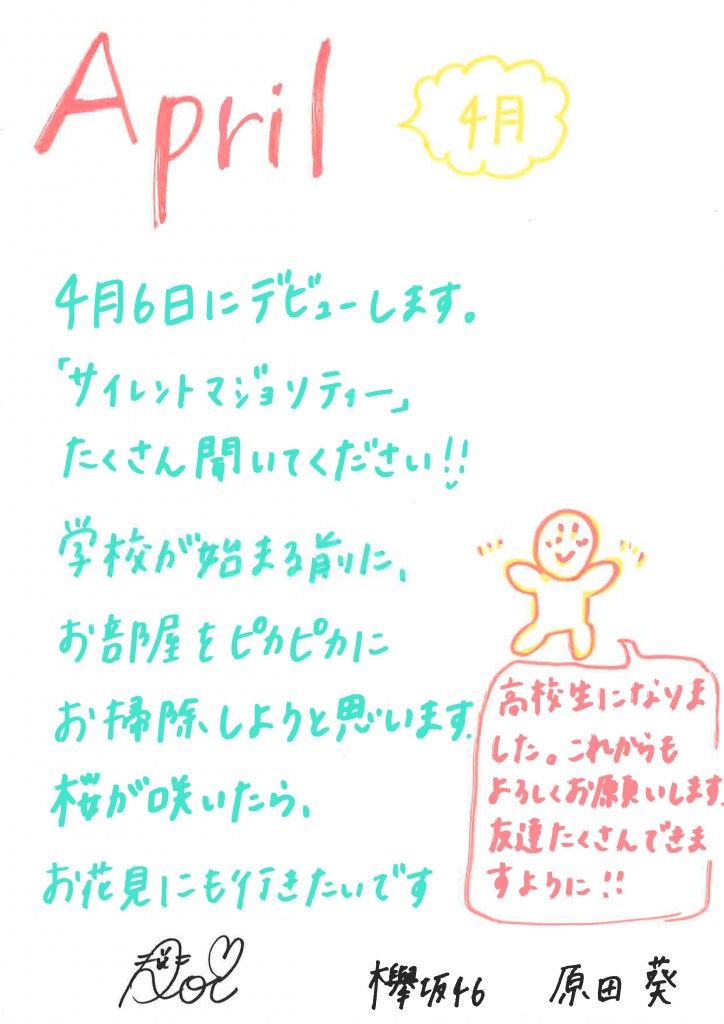 April
4月
4月6日にデビューします。
「サイレントマジョリティー」
たくさん聞いてください!!
学校が始まる前に、
お部屋をピカピカに
お掃除しようと思います。
桜が咲いたら、
お花見にも行きたいです
高校生になりま
した。これからも
よろしくお願いします。
友達たくさんできま
すように!!
欅坂46 原田葵